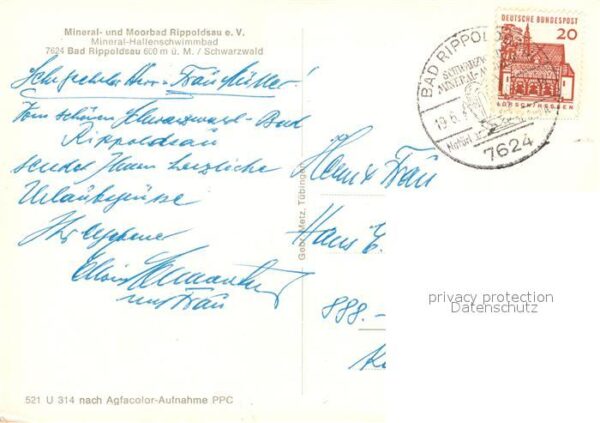 Mineral- und Moorbad Rippoldsau e. V.
Mineral-Hallenschwimmbad
7624 Bad Rippoldsau 600 m ü. M. / Schwarzwald
Sehr geehrter Herr – Frau
Vom schönen Schwarzwald-Bad
Rippoldsau
sendet Ihnen herzliche
Urlaubsgrüsse
Ihr ergebener
und Frau
Gebr. Metz, Tübingen
DEUTSCHE BUNDESPOST
20
LORSCH/HESSEN
BAD RIPPOLDSAU
19.6.
7624
Herr & Frau
Hans E.
888.-
privacy protection
Datenschutz
521 U 314 nach Agfacolor-Aufnahme PPC